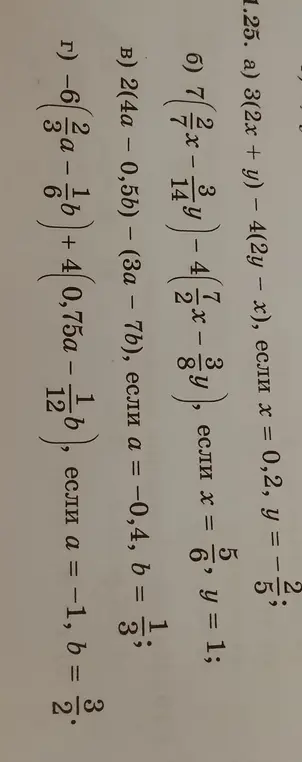 1.25. а) 3(2x + y) − 4(2y − x), если x = 0,2, y = −2/5;
б) 7(2/7x − 3/14y) − 4(7/2x − 3/8y), если x = 5/6, y = 1;
в) 2(4a − 0,5b) − (3a − 7b), если a = −0,4, b = 1/3;
г) −6(2/3a − 1/6b) + 4(0,75a − 1/12b), если a = −1, b = 3/2.